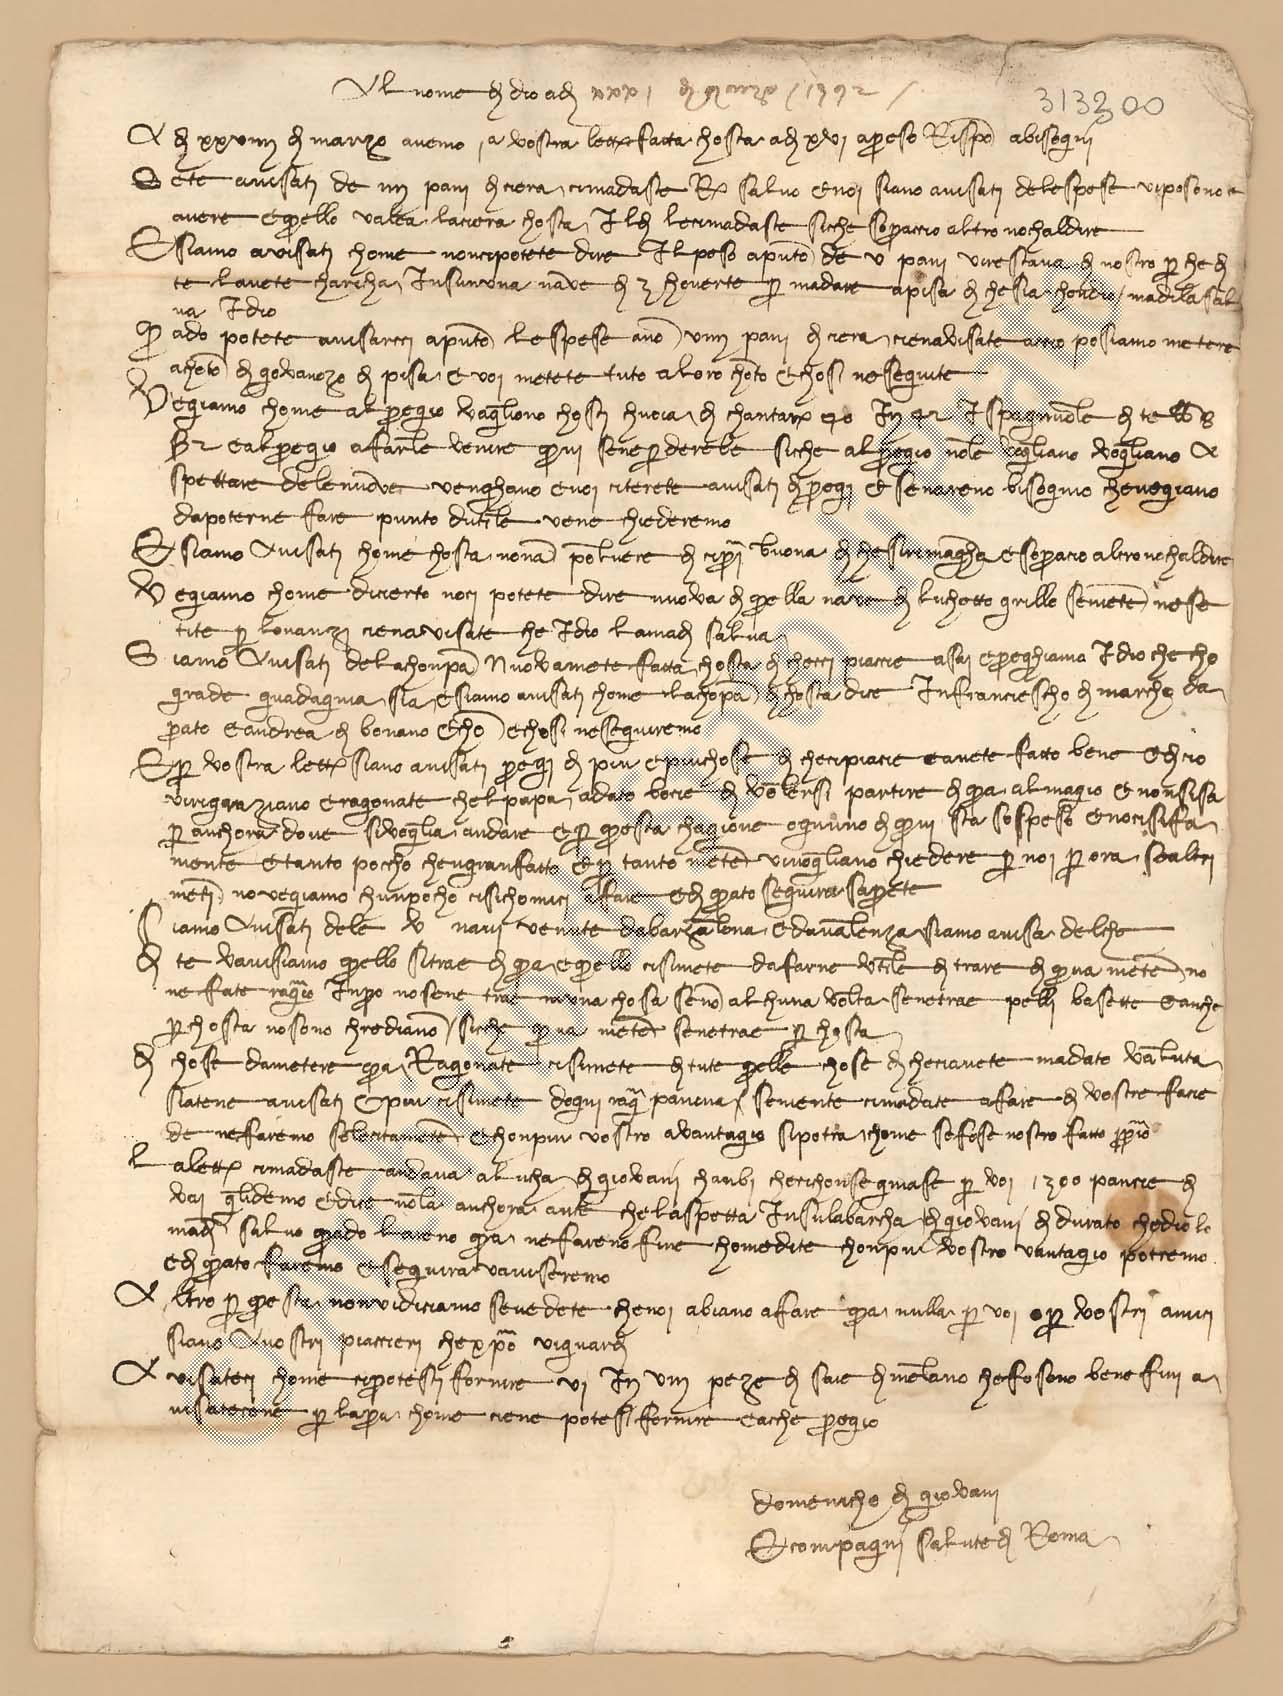 Al nome di dio adi xxxi di marzo 1392
313300
A di xxviiii di marzo avemo 1a vostra lettera fatta chosta adi xvi apreso Rispo abisogni
Sete avisati de iiii pani di ciera cimadaste salvo e noi siano avisati delespese viposono
avere e quello valea laciera chosta lecimadaste siche sopraccio altro nochaldire
E siamo avisati chome noncipotete dire Il peso apunto de v pani virestava di nostro per che di
te lavete charicha Insununa nave di 3 choverte per madare apisa di che sia chondio madila sal
va Idio
Quado potete avisarcci apunto lespese ano viiii pani di ciera cienavisate accio posiamo metere
achonto di govanozo di pisa e voi metete tuto aloro chonto e chosi neseguite
Vegiamo chome al pregio vagliono chosti chuoia di chantara 40 In 42 Ispagniuole di
e al pregio a farle venire qui sene perderebe siche al pregio nole vogliano vogliano A
spettare delenuove venghano e noi citerete avisati di pregi e senareno bisognio chevegiano
dapoterne fare punto dutile vene chiederemo
E siamo Avisati chome chosta nona polvere di cipri buona di che e sopracio altro nochaldire
Vegiamo chome dicierto noci potete dire nuova di quella nave di luchetto grillo semete nese
tite per lovanzi cienavisate che Idio lamadi salva
Siamo Avisati delachonpa Nuovamete fatta chosta di checci piaccie asai e preghiamo Idio che cho
grade guadagnia sia e siamo avisati chome lachopa di chosta dice Infranciescho di marcho da
prato e andrea di bonano e cho e chosi neseguiremo
E per vostra lettera siano avisati pregi di piu e piu chose di checipiacie eavete fatto bene e di cio
viringraziano e ragonate chelpapa adato bocie di volersi partire di qua al magio e nonsisa
per anchora dove sivoglia andare e per questa chagione ogniuno di qui sta sospeso e nocisifa
niente e tanto pocho chengranfatto e per tanto nete vivogliano chiedere per noi per ora sealtri
meti no vegiamo chunpocho cisichomici affare e di quato seguira saprete
Siamo Avisati dele v navi venute dabarzalona e davalenza siamo avisa delche
Di te vavisiamo quello sitrae di qua e quello cisimete dafarne utile di trare di qua niente no
ne fate ragio Inpero nosene trae niuna chosa seno alchuna volta senetrae pelli basette e anche
per chosta nosono chrediano siche qua niente senetrae per chosta
Di chose dametere qua Ragonate cisimete di tute quelle chose di checiavete madato valuta
siatene avisati e piu cisimete dogni ragio panina semente cimadate affare di vostre facie
de nefaremo solecitamente e chonpiu vostro avantagio sipotra chome sefose nostro fatto proprio
La lettera cimadaste andava alucha di giovani chanbi checichonsegniase per voi 1300 pancie di
vai glidemo e dice nola anchora ante chelaspetta Insulabarcha di giovani di durato chedio lo
madi salvo quado lareno qua nefareno fine chomedite chonpiu vostro vantagio potremo
e di quato faremo e seguira vaviseremo
Altro per questa nonvidiciamo sevedete chenoi abiano affare qua nulla per voi o per vostri amici
siano Avostri piaccieri che xpo viguardi
Avisateci chome cipotesti fornire vi In vii peze di saie di melano chefosono bene fini a
visatecene per laprima chome ciene potesti fornire e acche pregio
domenicho di giovani
E compagni salute di Roma